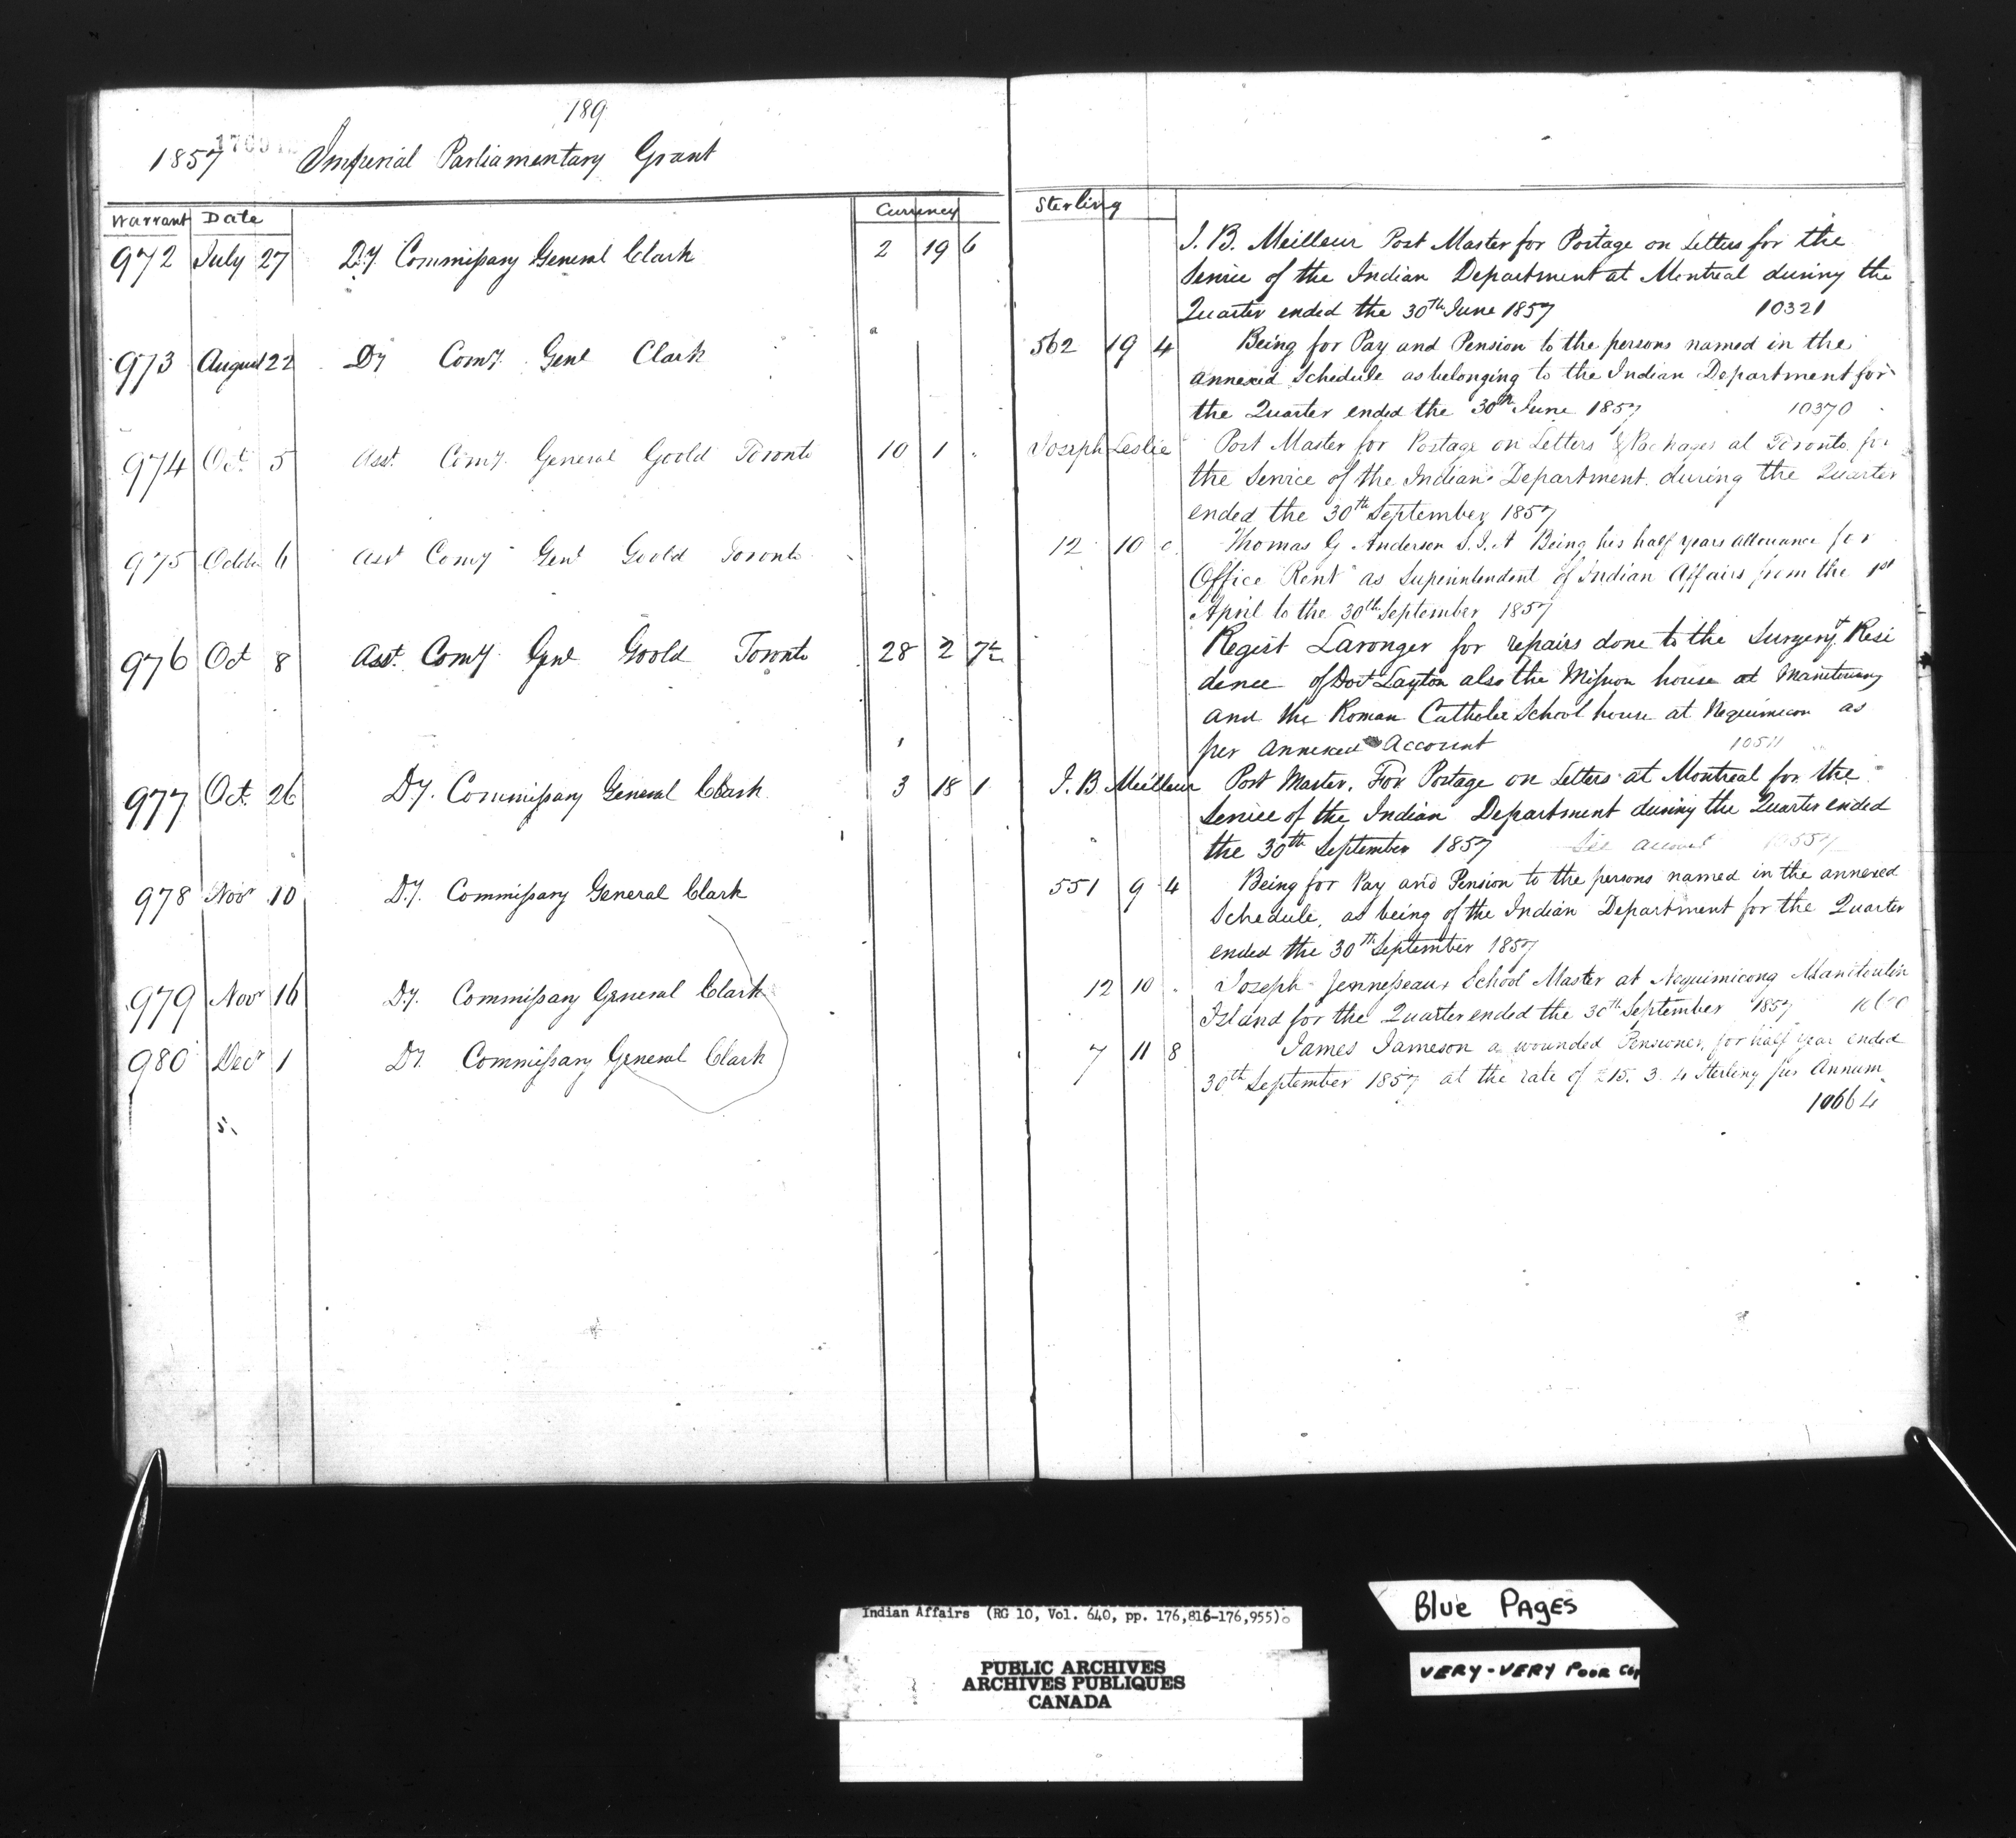 189
1857 Imperial Parliamentary Grant
Warrant Date Currency Sterling
972 July 27 Dy. Commissary General Clark 2 19 6 J. B. Meilleur Post Master for Postage on Letters for the
Service of the Indian Department at Montreal during the
Quarter ended the 30th June 1857 10321
973 August 22 Dy Comy. Genl Clark 562 19 4 Being for Pay and Pension to the persons named in the
annexed Schedule as belonging to the Indian Department for
the Quarter ended the 30th June 1857 10370
974 Oct. 5 Asst. Comy. General Goold Toronto 10 1 " Joseph Leslie Post Master for Postage on Letters & Packages at Toronto for
the Service of the Indian Department during the Quarter
ended the 30th September 1857
975 6 Asst Comy Genl Goold Toronto 12 10 Thomas G Anderson S. I. A Being his half years allowance for
Office Rent as Superintendent of Indian Affairs from the 1st
April to the 30th September 1857
976 Oct 8 Asst. Comy. Genl Goold Toronto 28 2 Regist Laronger for repairs done to the Surgery, Resi
dence of Doct Layton also the Mission house at
and the Roman Catholic School house at as
per annexed Account 10511
977 Oct. 26 Dy. Commissary General Clark 3 18 1 J. B. Meilleur Post Master. For Postage on Letters at Montreal for the
Service of the Indian Department during the Quarter ended
the 30th September 1857 See account 10557
978 Novr 10 Dy. Commissary General Clark 551 9 4 Being for Pay and Pension to the persons named in the annexed
Schedule, as being of the Indian Department for the Quarter
ended the 30th September 1857
979 Novr 16 Dy. Commissary General Clark 12 10 " Joseph Jennesseaux School Master at Manitoulin
Island for the Quarter ended the 30th September 1857
980 Decr 1 Dy. Commissary General Clark 7 11 8 James Jameson a wounded Pensioner, for half year ended
30th September 1857 at the rate of £15. 3. 4 Sterling per Annum
10664
Indian Affairs (RG 10, Vol. 640, pp. 176,816-176,955)
PUBLIC ARCHIVES
ARCHIVES PUBLIQUES
CANADA
Blue Pages
VERY-VERY POOR